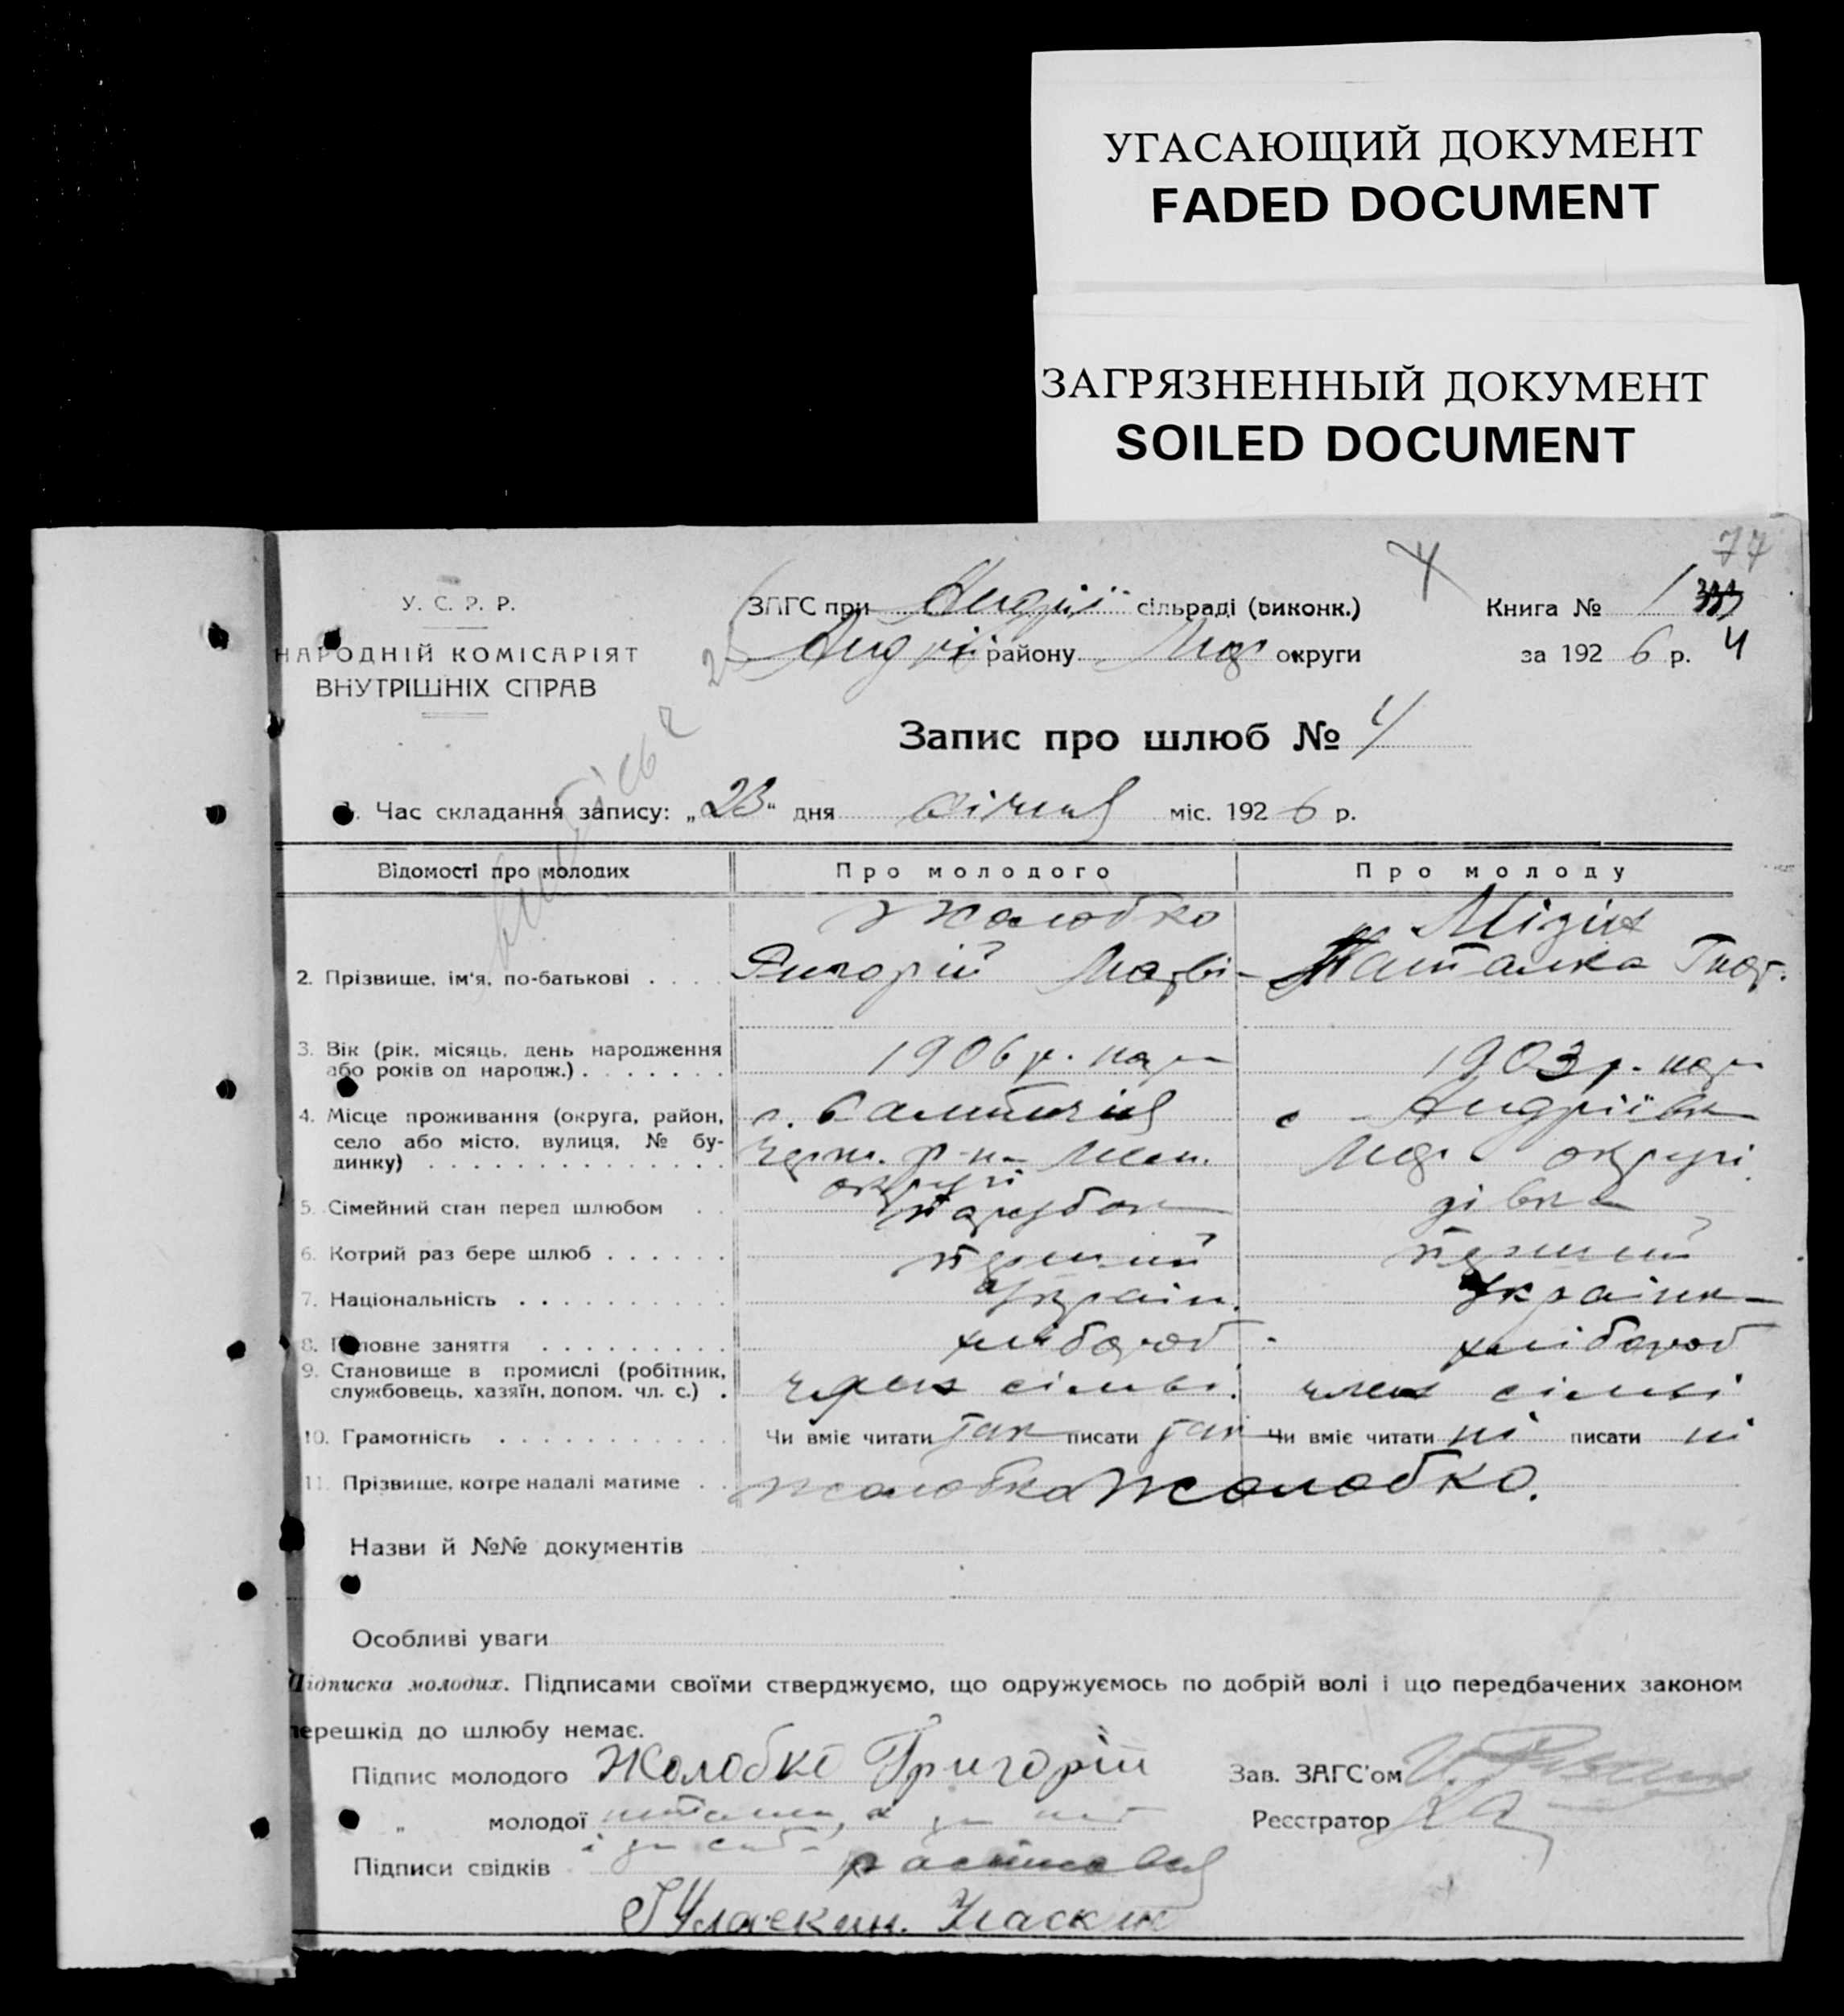 УГАСАЮЩИЙ ДОКУМЕНТ
FADED DOCUMENT
ЗАГРЯЗНЕННЫЙ ДОКУМЕНТ
SOILED DOCUMENT
4 77
У. С. Р. Р.
НАРОДНІЙ КОМІСАРІЯТ
ВНУТРІШНІХ СПРАВ
ЗАГС при Андрії сільраді (виконк.)
Андрії району округи
Книга № 1
за 1926 р. 4
Запис про шлюб № 4
1. Час складання запису: „23" дня січня міс. 1926 р.
Відомості про молодих Про молодого Про молоду
2. Прізвище, ім'я, по-батькові . . . . Жолобко Григорій Матві- Мізін Наталка
3. Вік (рік, місяць, день народження або років од народж.) . . . . . . . 1906 р. нар 1903 р. нар
4. Місце проживання (округа, район, село або місто, вулиця, № будинку) . . . . . . . . . . . . . . с. р-н округи с. Андріївка округи
5. Сімейний стан перед шлюбом . . парубок дівка
6. Котрий раз бере шлюб . . . . . . перший перший
7. Національність . . . . . . . . . . Україн. Українка
8. Головне заняття . . . . . . . . . хлібороб хлібороб
9. Становище в промислі (робітник, службовець, хазяїн, допом. чл. с.) . член сімьі член сімьі
10. Грамотність . . . . . . . . . . . Чи вміє читати так писати так Чи вміє читати ні писати ні
11. Прізвище, котре надалі матиме . . Жолобко Жолобко.
Назви й №№ документів
Особливі уваги
Підписка молодих. Підписами своїми стверджуємо, що одружуємось по добрій волі і що передбачених законом
перешкід до шлюбу немає.
Підпис молодого Жолобко Григорій Зав. ЗАГС'ом
„ молодої Реєстратор
Підписи свідків